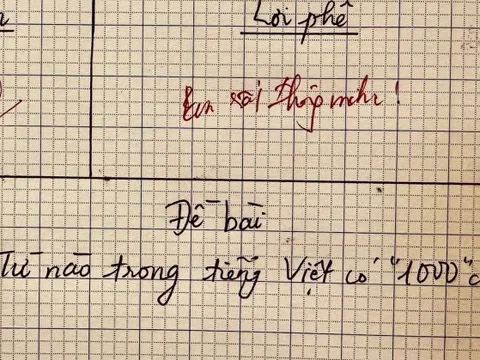 Lời phê
Em xới thông minh!
Đề bài
Từ nào trong tiếng Việt có "1000"